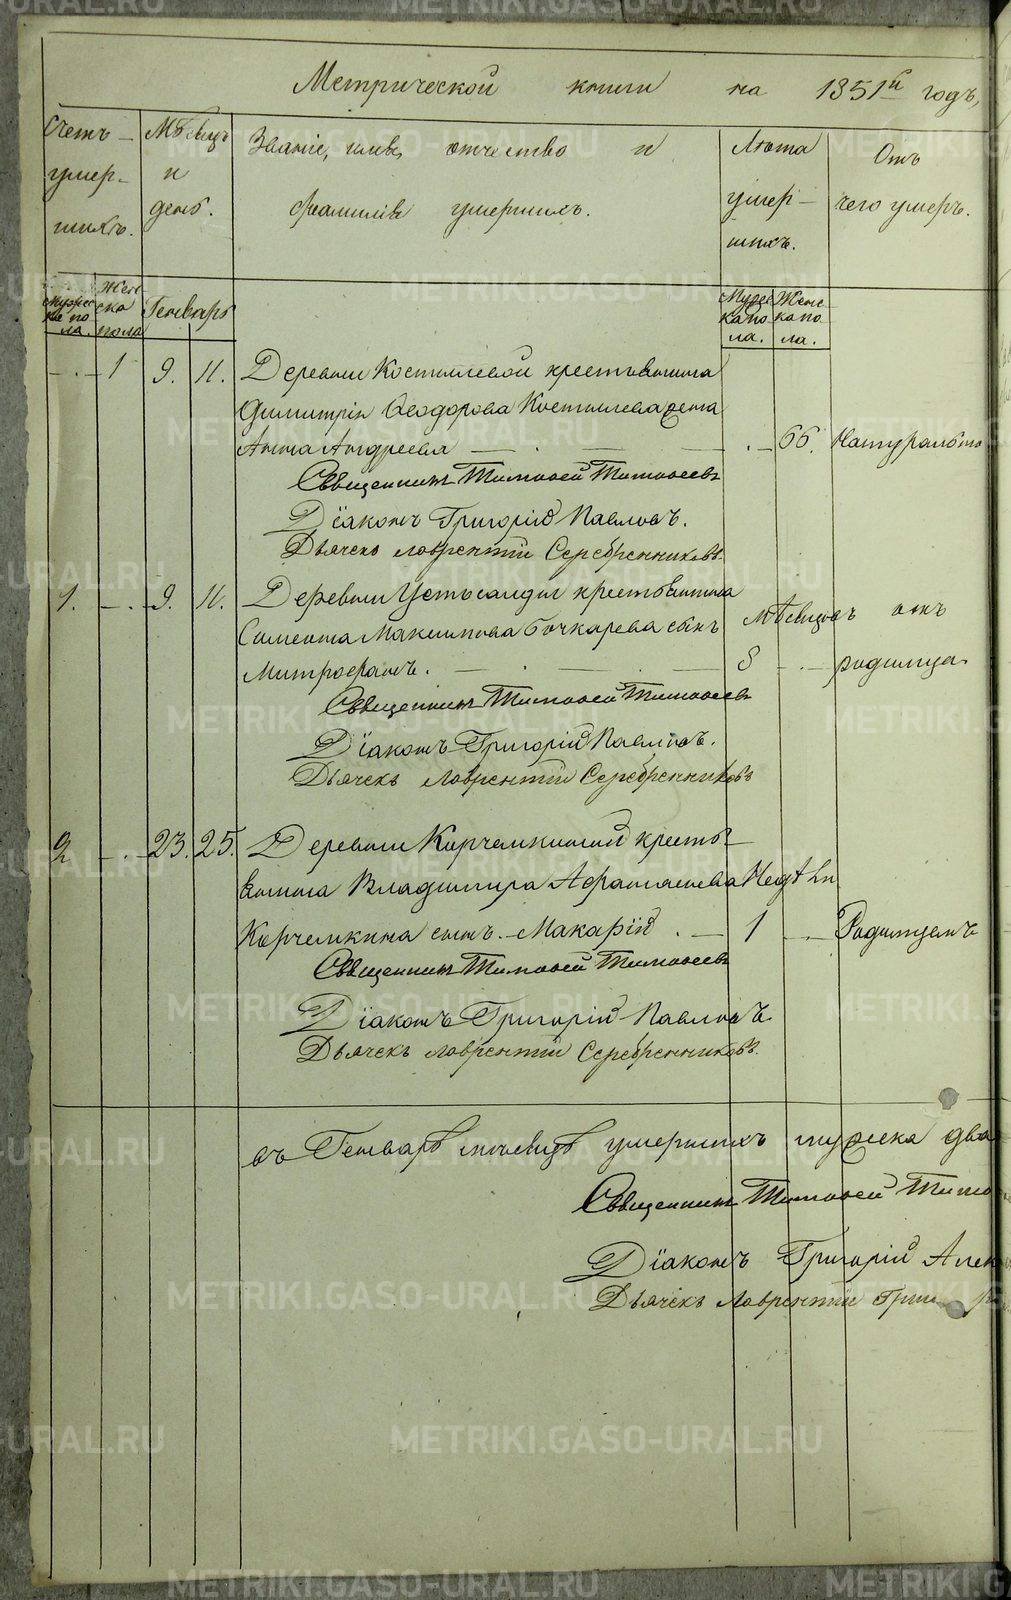 Метрической книги на 1851й годъ,
Счетъ умер- шихъ.
Мѣсяцъ и день.
Званіе, имя, отчество и фамилія умершихъ.
Лѣта умер- шихъ.
Отъ чего умеръ.
Мужес ка по ла.
Женс ска пола
Генварь
Мужес ка по ла.
Женс ка по ла.
1 9. 11. Деревни Костылевой крестьянина
Димитрія Ѳеодорова Костылева жена
Анна Андреева 66. Натурально
Священникъ Тимоѳей Тимоѳеевъ
Дїаконъ Григорій Павловъ.
Дьячекъ Лаврентій Серебренниковъ.
1. 9. 11. Деревни Устьсалды крестьянина
Симеона Максимова Бочкарева сынъ мѣсяцовъ отъ
Митрофанъ. 8 родимца.
Священникъ Тимоѳей Тимоѳеевъ
Дїаконъ Григорій Павловъ.
Дьячекъ Лаврентій Серебренниковъ
2 23. 25. Деревни Корчемкиной кресть-
янина Владимира Аѳанасьева Недѣли
Корчемкина сынъ Макарій. 1 Родимцемъ
Священникъ Тимоѳей Тимоѳеевъ
Дїаконъ Григорій Павловъ
Дьячекъ Лаврентій Серебренниковъ.
въ Генварѣ мѣсяцѣ умершихъ мужеска два
Священникъ Тимоѳей Тимо
Дїаконъ Григорій
Дьячекъ Лаврентій
METRIKI.GASO-URAL.RU